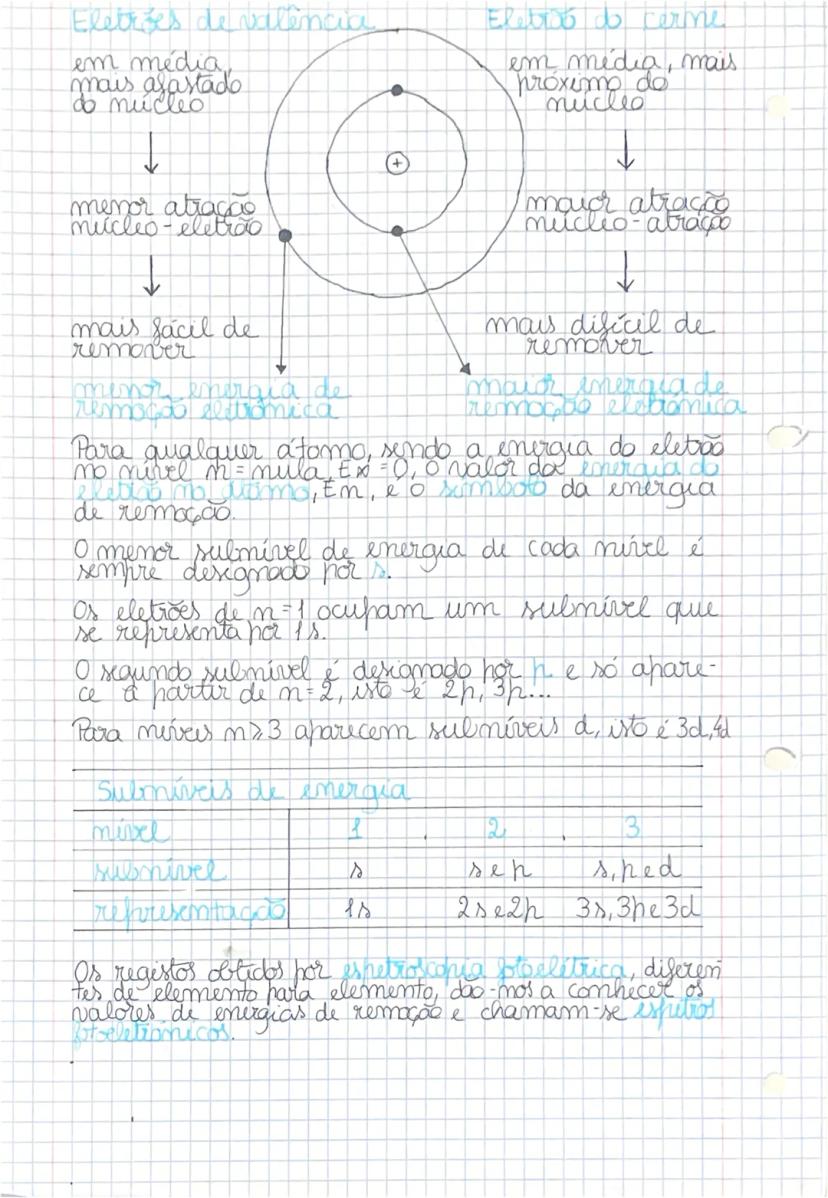 Eletrões de valência
em média,
mais afastado
do núcleo
menor atração
núcleo-eletrão
mais fácil de
remover
menor energia de
remoção eletrónica
Eletrão do cerne
em média, mais
próximo do
núcleo
+
maior atração
núcleo-atração
mais difícil de
remover
maior energia de
remoção eletrónica
Para qualquer átomo, sendo a energia do eletrão
no nível n = nula, E∞ = 0, o valor da energia do
eletrão no átomo, En, é o símbolo da energia
de remoção.
O menor subnível de energia de cada nível é
sempre designado por s.
Os eletrões de n=1 ocupam um subnível que
se representa por 1s.
O segundo subnível é designado por p e só apare-
ce a partir de n=2, isto é 2p, 3p...
Para níveis n≥3 aparecem subníveis d, isto é 3d, 4d
Subníveis de energia
nível 1 2 3
subnível s s e p s, p e d
representação 1s 2s e 2p 3s, 3p e 3d
Os registos obtidos por espetroscopia fotoelétrica, diferen
tes de elemento para elemento, dão-nos a conhecer os
valores de energias de remoção e chamam-se espetros
fotoeletrónicos.